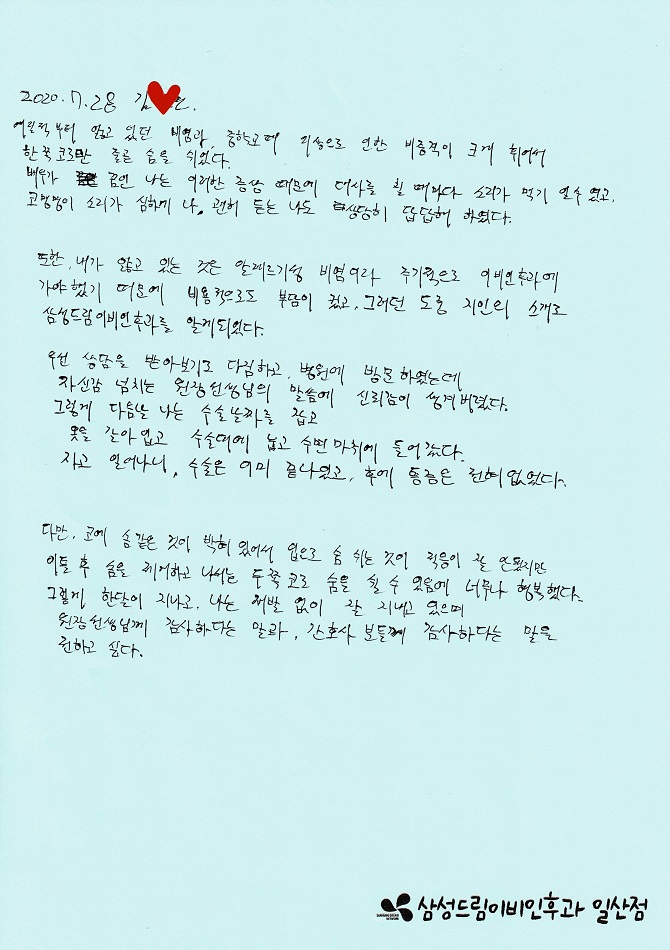 2020. 7. 28 김 인.
어릴적부터 앓고 있던 비염과, 중학교때 외상으로 인한 비중격이 크게 휘어서
한쪽 코로만 줄곧 숨을 쉬었다.
배우가 꿈인 나는 이러한 증상 때문에 대사를 칠 때마다 소리가 먹기 일수였고,
코맹맹이 소리가 심하게 나, 괜히 듣는 나도 상당히 답답해 하였다.
또한, 내가 앓고 있는 것은 알레르기성 비염이라 주기적으로 이비인후과에
가야했기 때문에 비용적으로도 부담이 컸고, 그러던 도중 지인의 소개로
삼성드림이비인후과를 알게되었다.
우선 상담을 받아보기로 다짐하고, 병원에 방문하였는데
자신감 넘치는 원장선생님의 말씀에 신뢰감이 생겨버렸다.
그렇게 다음날 나는 수술날짜를 잡고
옷을 갈아입고 수술대에 눕고 수면마취에 들어갔다.
자고 일어나니, 수술은 이미 끝나있었고, 후에 통증은 전혀없었다.
다만, 코에 솜같은 것이 박혀 있어서 입으로 숨 쉬는 것이 적응이 잘 안됐지만
이틀 후 솜을 제거하고 나서는 두쪽 코로 숨을 쉴 수 있음에 너무나 행복했다.
그렇게 한달이 지나고, 나는 재발 없이 잘 지내고 있으며
원장선생님께 감사하다는 말과, 간호사 분들께 감사하다는 말을
전하고 싶다.
삼성드림이비인후과 일산점